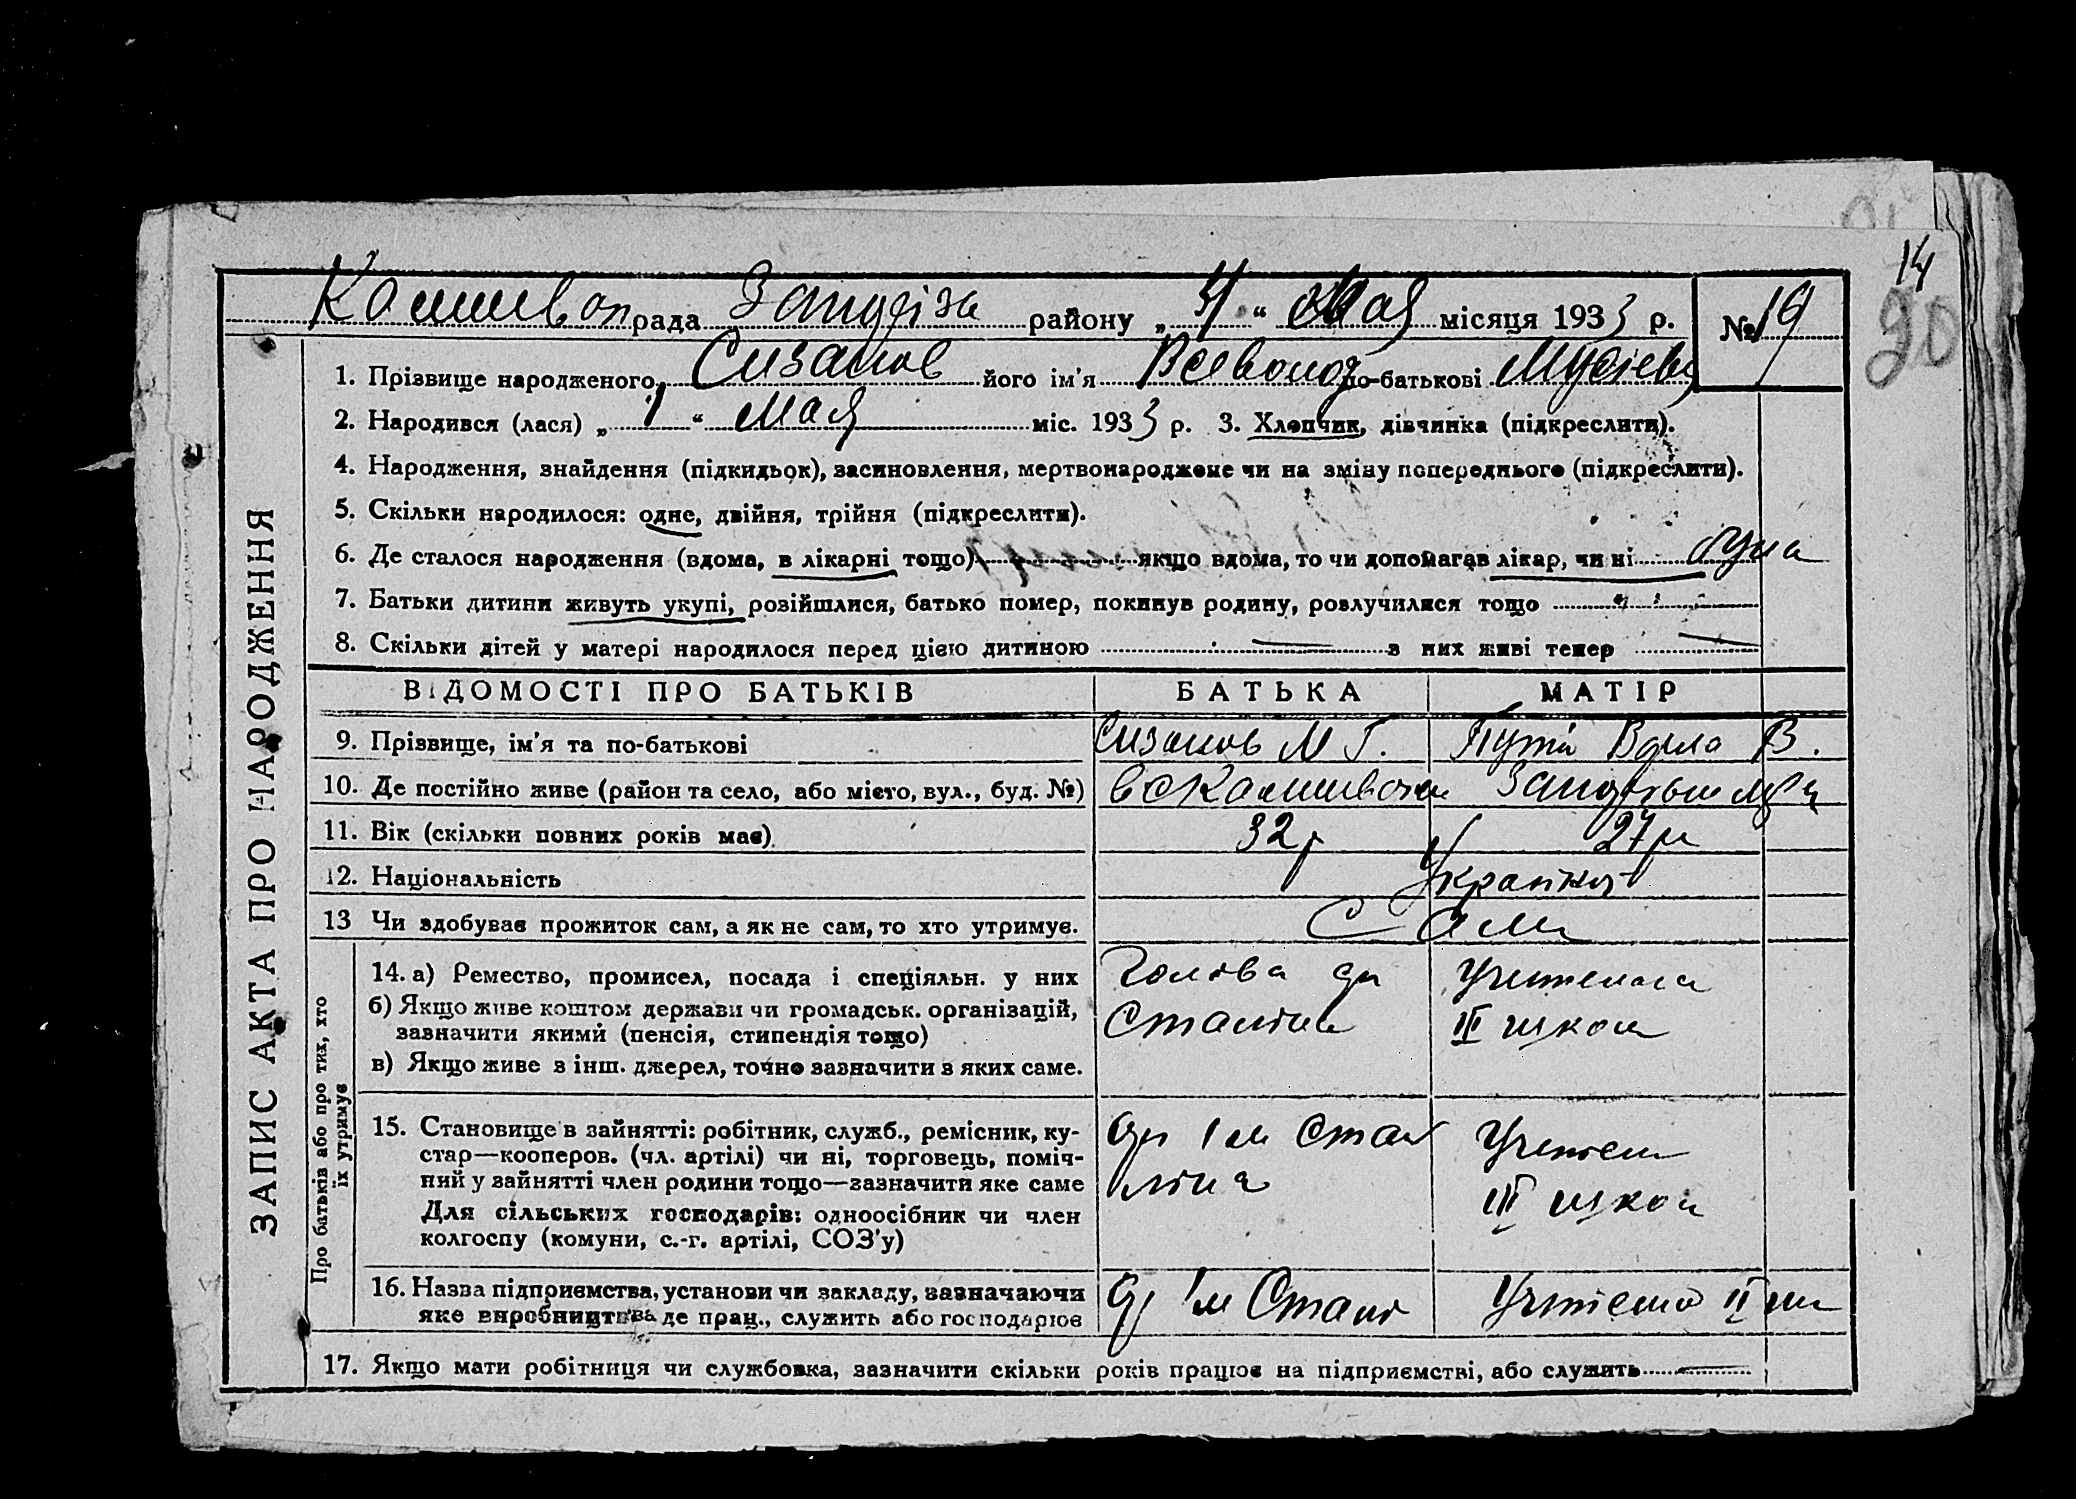 14
20
рада району „ “ мая місяця 1933 р. № 19
1. Прізвище народженого Сизанов його ім'я Всеволод по-батькові
2. Народився (лася) „ 1 “ мая міс. 1933 р. 3. Хлопчик, дівчинка (підкреслити).
4. Народження, знайдення (підкидьок), засиновлення, мертвонароджене чи на зміну попереднього (підкреслити).
5. Скільки народилося: одне, двійня, трійня (підкреслити).
6. Де сталося народження (вдома, в лікарні тощо) якщо вдома, то чи допомагав лікар, чи ні
7. Батьки дитини живуть укупі, розійшлися, батько помер, покинув родину, розлучилися тощо
8. Скільки дітей у матері народилося перед цією дитиною — з них живі тепер —
ЗАПИС АКТА ПРО НАРОДЖЕННЯ
ВІДОМОСТІ ПРО БАТЬКІВ БАТЬКА МАТІР
9. Прізвище, ім'я та по-батькові Сизанов М Г. В.
10. Де постійно живе (район та село, або місто, вул., буд. №)
11. Вік (скільки повних років має) 32 р 27 р
12. Національність
13 Чи здобуває прожиток сам, а як не сам, то хто утримує. Сами
Про батьків або про тих, хто
їх утримує
14. а) Ремество, промисел, посада і спеціяльн. у них
б) Якщо живе коштом держави чи громадськ. організацій,
зазначити якими (пенсія, стипендія тощо)
в) Якщо живе з інш. джерел, точно зазначити з яких саме.
Голова
Сталіна
III школи
15. Становище в зайнятті: робітник, служб., ремісник, ку-
стар—кооперов. (чл. артілі) чи ні, торговець, поміч-
ний у зайнятті член родини тощо—зазначити яке саме
Для сільських господарів: одноосібник чи член
колгоспу (комуни, с.-г. артілі, СОЗ'у)
ім Ста
ліна
III школи
16. Назва підприємства, установи чи закладу, зазначаючи
яке виробництва де прац., служить або господарює
ім Сталі
17. Якщо мати робітниця чи службовка, зазначити скільки років працює на підприємстві, або служить —